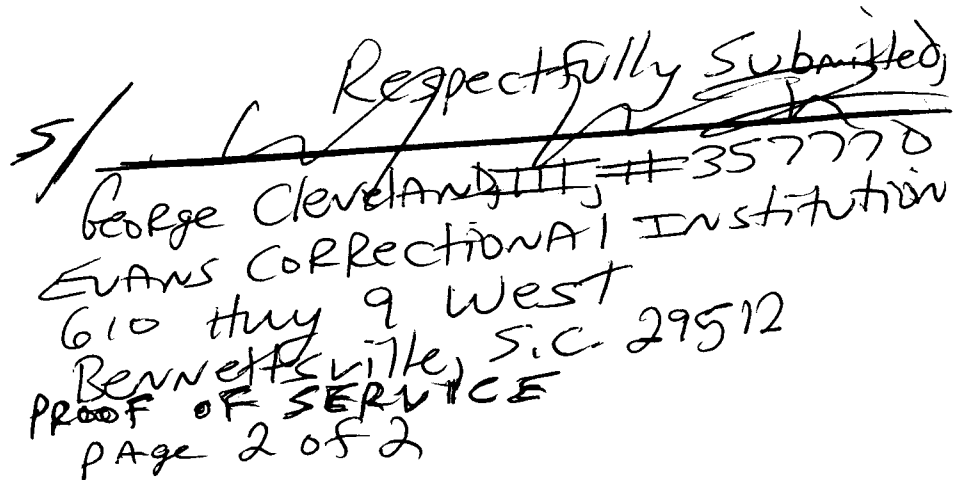 Respectfully Submitted,
s/
George Cleveland, III, # 357770
Evans Correctional Institution
610 Hwy 9 West
Bennettsville, S.C. 29512
PROOF OF SERVICE
PAge 2 of 2